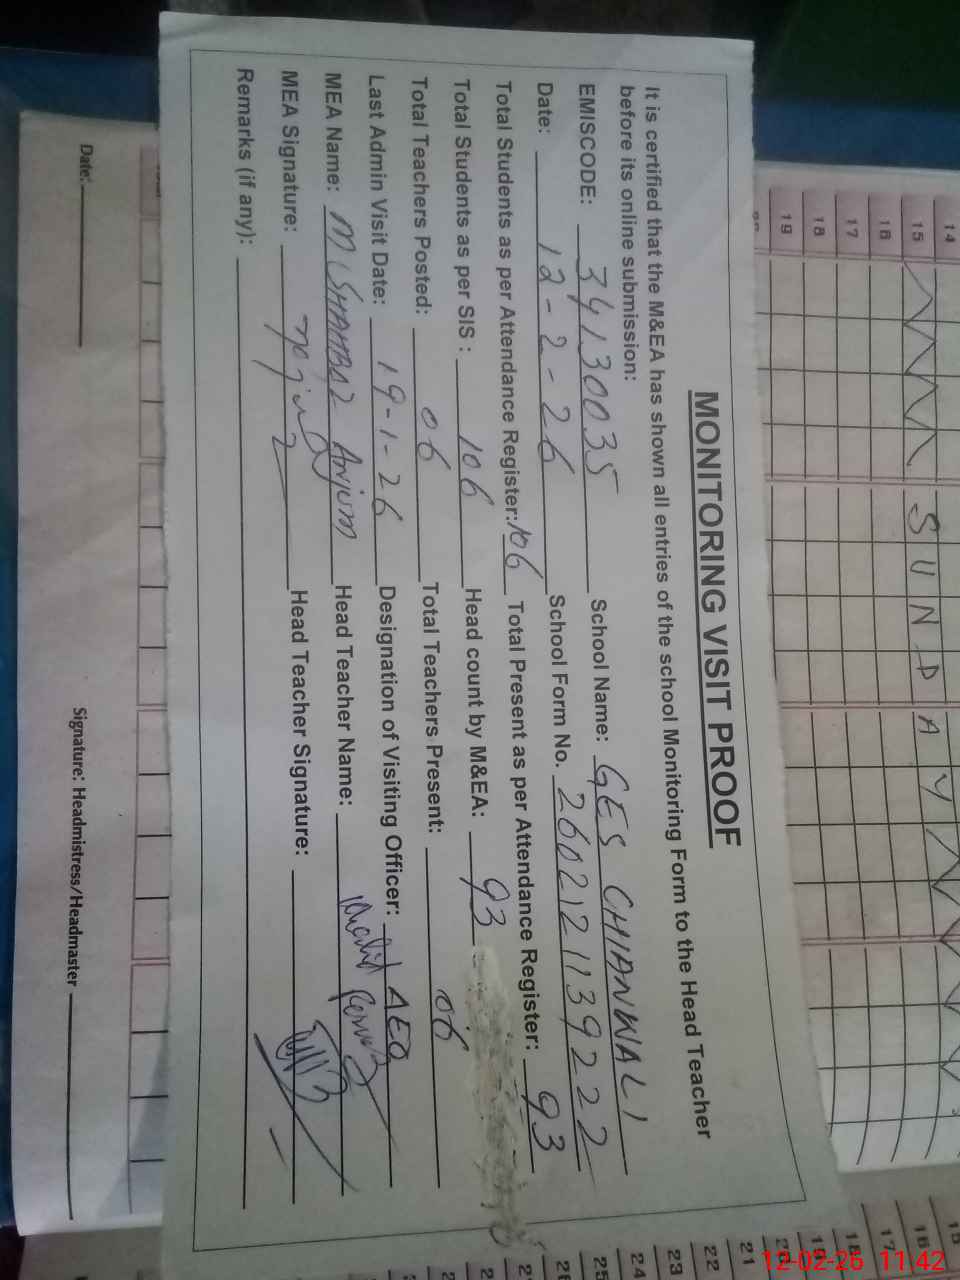 MONITORING VISIT PROOF
It is certified that the M&EA has shown all entries of the school Monitoring Form to the Head Teacher
before its online submission:
EMISCODE: 34130035 School Name: GES CHIANWALI
Date: 12-2-26 School Form No. 2602121139222
Total Students as per Attendance Register: 106 Total Present as per Attendance Register: 93
Total Students as per SIS : 106 Head count by M&EA: 93
Total Teachers Posted: 06 Total Teachers Present: 06
Last Admin Visit Date: 19-1-26 Designation of Visiting Officer: AEO
MEA Name: M SHAHBAZ Anjum Head Teacher Name: Khalid Pervaiz
MEA Signature: Head Teacher Signature:
Remarks (if any):
14
15 SUNDAY
16
17
18
19
Date:
Signature: Headmistress/Headmaster
15
16
17
18
19
20
21
22
23
24
25
12-02-26 11:42